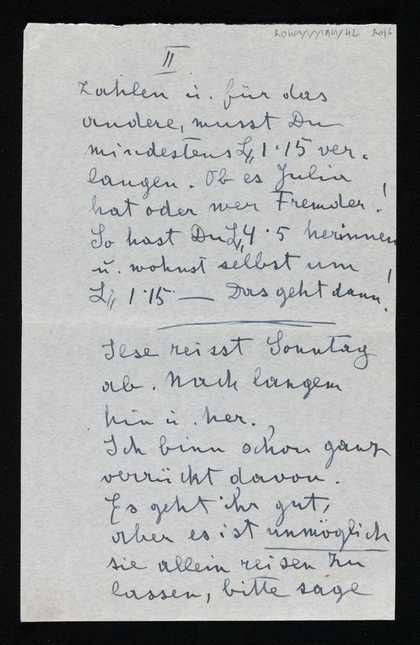 II
Zahlen u. für das
andere, musst Du
mindestens L„ 1·15 ver-
langen. Ob es Julia
hat oder wer Fremder!
So hast Du L„ 4·5 herinnen
u. wohnst selbst um
L„ 1·15 — Das geht dann!
Ilse reisst Sonntag
ab. Nach langem
hin u. her.
Ich binn schon ganz
verrückt davon.
Es geht ihr gut,
aber es ist unmöglich
sie allein reisen zu
lassen, bitte sage